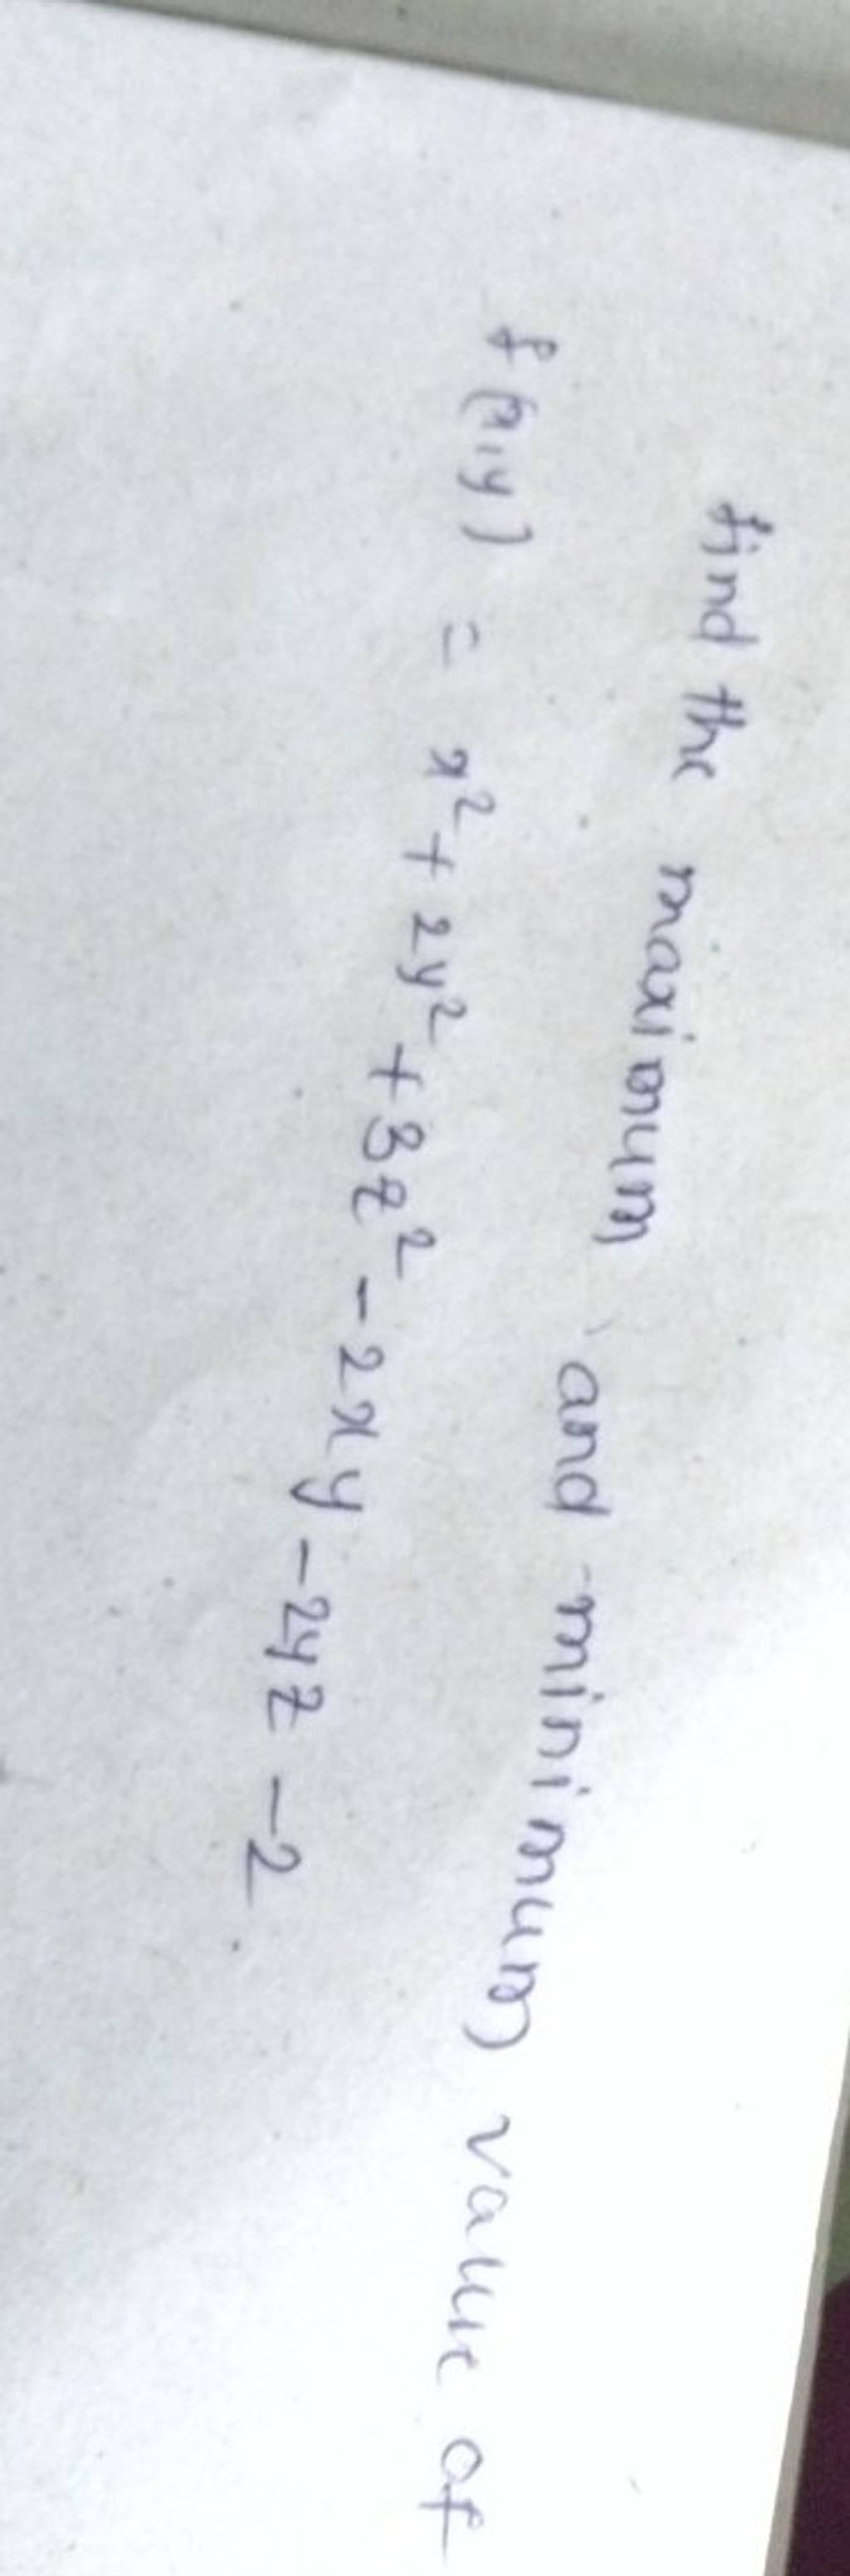 find the maximum and minimum value of
f(x,y) = x² + 2y² + 3z² - 2xy - 2yz - 2.